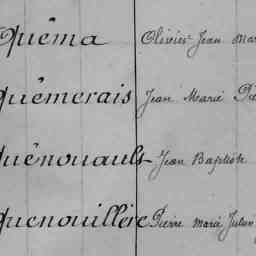 Quéma Olivier Jean Mar
Quémerais Jean Marie Pie
Quénouault Jean Baptiste
Quenouillère Pierre Marie Julien